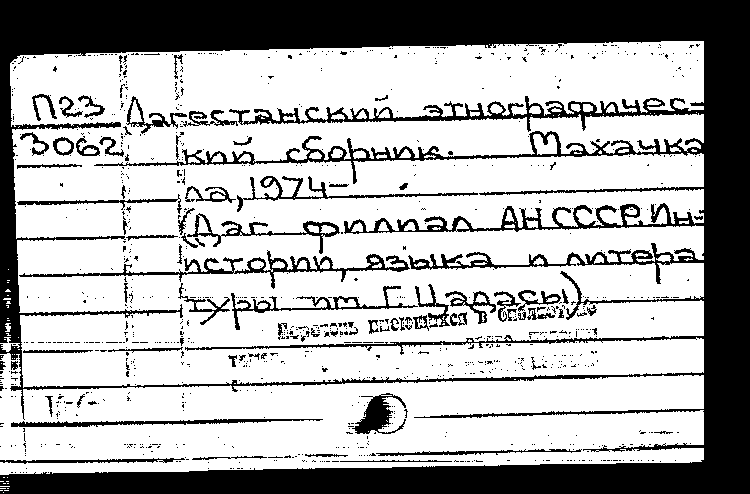 П23 Дагестанский этнографичес-
3062 кий сборник. Махачка
ла, 1974-
(Даг. филиал АН СССР. Ин-
истории, языка и литера
туры им. Г. Цадасы).
Перечень имеющихся в библиотеке
этого